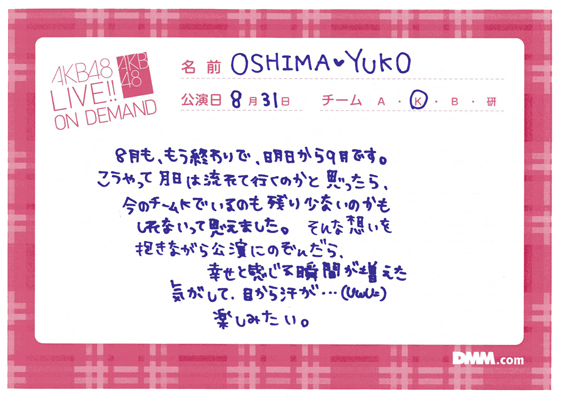 AKB48
LIVE!!
ON DEMAND
AKB
48
名前 OSHIMA♥YUKO
公演日 8月31日 チーム A・K・B・研
8月も、もう終わりで、明日から9月です。
こうやって月日は流れて行くのかと思ったら、
今のチームKでいるのも残り少ないのかも
しれないって思えました。そんな想いを
抱きながら公演にのぞんだら、
幸せと感じる瞬間が増えた
気がして、目から汗が…(UωU=)
楽しみたい。
DMM.com